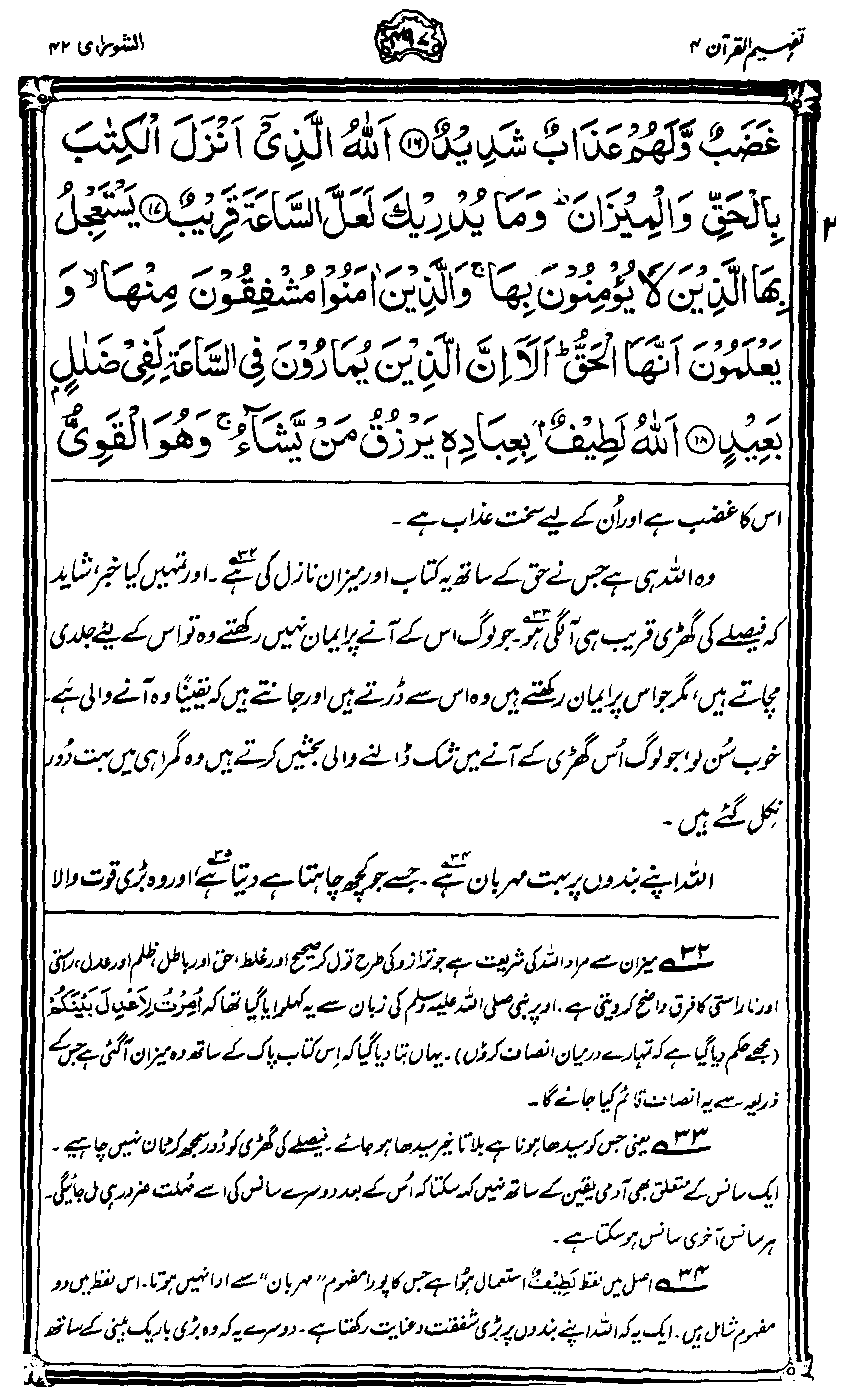 تفہیم القرآن ۴
۴۹۷
الشوریٰ ۴۲
غَضَبٌ وَّلَهُمْ عَذَابٌ شَدِيْدٌ ﴿۱۶﴾ اَللّٰهُ الَّذِيْۤ اَنْزَلَ الْكِتٰبَ
بِالْحَقِّ وَالْمِيْزَانَ ؕ وَمَا يُدْرِيْكَ لَعَلَّ السَّاعَةَ قَرِيْبٌ ﴿۱۷﴾ يَسْتَعْجِلُ
۲
بِهَا الَّذِيْنَ لَا يُؤْمِنُوْنَ بِهَا ۚ وَالَّذِيْنَ اٰمَنُوْا مُشْفِقُوْنَ مِنْهَا ۙ وَ
يَعْلَمُوْنَ اَنَّهَا الْحَقُّ ؕ اَلَاۤ اِنَّ الَّذِيْنَ يُمَارُوْنَ فِي السَّاعَةِ لَفِيْ ضَلٰلٍۭ
بَعِيْدٍ ﴿۱۸﴾ اَللّٰهُ لَطِيْفٌۢ بِعِبَادِهٖ يَرْزُقُ مَنْ يَّشَآءُ ۚ وَهُوَ الْقَوِيُّ
اس کا غضب ہے اور اُن کے لیے سخت عذاب ہے ۔
وہ اللہ ہی ہے جس نے حق کے ساتھ یہ کتاب اور میزان نازل کی ہے۳۲ ۔ اور تمہیں کیا خبر، شاید
کہ فیصلے کی گھڑی قریب ہی آ لگی ہو۳۳ ۔ جو لوگ اس کے آنے پر ایمان نہیں رکھتے وہ تو اس کے لیے جلدی
مچاتے ہیں، مگر جو اس پر ایمان رکھتے ہیں وہ اس سے ڈرتے ہیں اور جانتے ہیں کہ یقیناً وہ آنے والی ہے۔
خوب سُن لو، جو لوگ اُس گھڑی کے آنے میں شک ڈالنے والی بحثیں کرتے ہیں وہ گمراہی میں بہت دُور
نکل گئے ہیں ۔
اللہ اپنے بندوں پر بہت مہربان ہے۳۴ ۔ جسے جو کچھ چاہتا ہے دیتا ہے۳۵، اور وہ بڑی قوت والا
۳۲ میزان سے مراد اللہ کی شریعت ہے جو ترازو کی طرح تول کر صحیح اور غلط، حق اور باطل، ظلم اور عدل، راستی
اور ناراستی کا فرق واضح کر دیتی ہے ۔ اوپر نبی صلی اللہ علیہ وسلم کی زبان سے یہ کہلوایا گیا تھا کہ اُمِرْتُ لِاَعْدِلَ بَیْنَکُمْ
(مجھے حکم دیا گیا ہے کہ تمہارے درمیان انصاف کروں) ۔ یہاں بتا دیا گیا کہ اِس کتاب پاک کے ساتھ وہ میزان آ گئی ہے جس کے
ذریعہ سے یہ انصاف قائم کیا جائے گا ۔
۳۳ یعنی جس کو سیدھا ہونا ہے بلا تاخیر سیدھا ہو جائے ۔ فیصلے کی گھڑی کو دُور سمجھ کر ٹالنا نہیں چاہیے ۔
ایک سانس کے متعلق بھی آدمی یقین کے ساتھ نہیں کہہ سکتا کہ اُس کے بعد دوسرے سانس کی اسے مُہلت ضرور ہی مل جائیگی۔
ہر سانس آخری سانس ہو سکتا ہے ۔
۳۴ اصل میں لفظ لَطِیْفٌ استعمال ہوا ہے جس کا پورا مفہوم "مہربان" سے ادا نہیں ہوتا ۔ اس لفظ میں دو
مفہوم شامل ہیں ۔ ایک یہ کہ اللہ اپنے بندوں پر بڑی شفقت و عنایت رکھتا ہے ۔ دوسرے یہ کہ وہ بڑی باریک بینی کے ساتھ